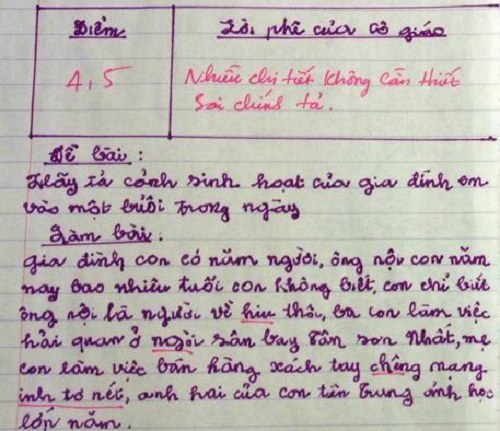 Điểm
Lời phê của cô giáo
4,5
Nhiều chi tiết không cần thiết
Sai chính tả.
Đề bài :
Hãy tả cảnh sinh hoạt của gia đình em
vào một buổi trong ngày
Làm bài :
gia đình con có năm người, ông nội con năm
nay bao nhiêu tuổi con không biết, con chỉ biết
ông nội là người về hiu thôi, ba con làm việc
hải quan ở ngoài sân bay Tân Sơn Nhất, mẹ
con làm việc bán hàng xách tay chêng mang
inh tơ nét, anh hai của con tên Trung ảnh học
lớp năm.